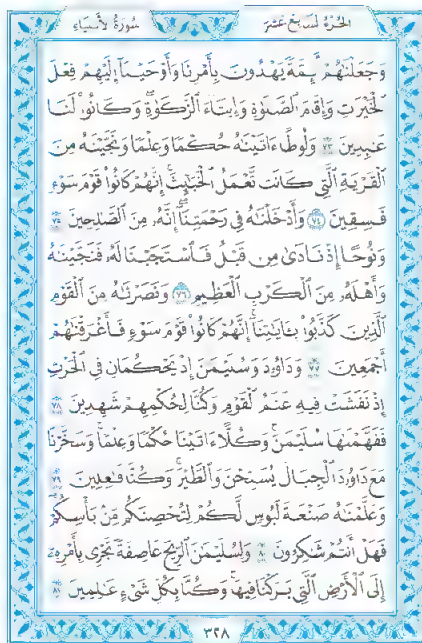 الجزء السابع عشر سورة الأنبياء
وَجَعَلْنَٰهُمْ أَئِمَّةً يَهْدُونَ بِأَمْرِنَا وَأَوْحَيْنَآ إِلَيْهِمْ فِعْلَ
ٱلْخَيْرَٰتِ وَإِقَامَ ٱلصَّلَوٰةِ وَإِيتَآءَ ٱلزَّكَوٰةِ وَكَانُوا۟ لَنَا
عَٰبِدِينَ ٧٣ وَلُوطًا ءَاتَيْنَٰهُ حُكْمًا وَعِلْمًا وَنَجَّيْنَٰهُ مِنَ
ٱلْقَرْيَةِ ٱلَّتِى كَانَت تَّعْمَلُ ٱلْخَبَٰٓئِثَ إِنَّهُمْ كَانُوا۟ قَوْمَ سَوْءٍ
فَٰسِقِينَ ٧٤ وَأَدْخَلْنَٰهُ فِى رَحْمَتِنَآ إِنَّهُۥ مِنَ ٱلصَّٰلِحِينَ ٧٥
وَنُوحًا إِذْ نَادَىٰ مِن قَبْلُ فَٱسْتَجَبْنَا لَهُۥ فَنَجَّيْنَٰهُ
وَأَهْلَهُۥ مِنَ ٱلْكَرْبِ ٱلْعَظِيمِ ٧٦ وَنَصَرْنَٰهُ مِنَ ٱلْقَوْمِ
ٱلَّذِينَ كَذَّبُوا۟ بِـَٔايَٰتِنَآ إِنَّهُمْ كَانُوا۟ قَوْمَ سَوْءٍ فَأَغْرَقْنَٰهُمْ
أَجْمَعِينَ ٧٧ وَدَاوُۥدَ وَسُلَيْمَٰنَ إِذْ يَحْكُمَانِ فِى ٱلْحَرْثِ
إِذْ نَفَشَتْ فِيهِ غَنَمُ ٱلْقَوْمِ وَكُنَّا لِحُكْمِهِمْ شَٰهِدِينَ ٧٨
فَفَهَّمْنَٰهَا سُلَيْمَٰنَ وَكُلًّا ءَاتَيْنَا حُكْمًا وَعِلْمًا وَسَخَّرْنَا
مَعَ دَاوُۥدَ ٱلْجِبَالَ يُسَبِّحْنَ وَٱلطَّيْرَ وَكُنَّا فَٰعِلِينَ ٧٩
وَعَلَّمْنَٰهُ صَنْعَةَ لَبُوسٍ لَّكُمْ لِتُحْصِنَكُم مِّنۢ بَأْسِكُمْ
فَهَلْ أَنتُمْ شَٰكِرُونَ ٨٠ وَلِسُلَيْمَٰنَ ٱلرِّيحَ عَاصِفَةً تَجْرِى بِأَمْرِهِۦٓ
إِلَى ٱلْأَرْضِ ٱلَّتِى بَٰرَكْنَا فِيهَا وَكُنَّا بِكُلِّ شَىْءٍ عَٰلِمِينَ ٨١
٣٢٨